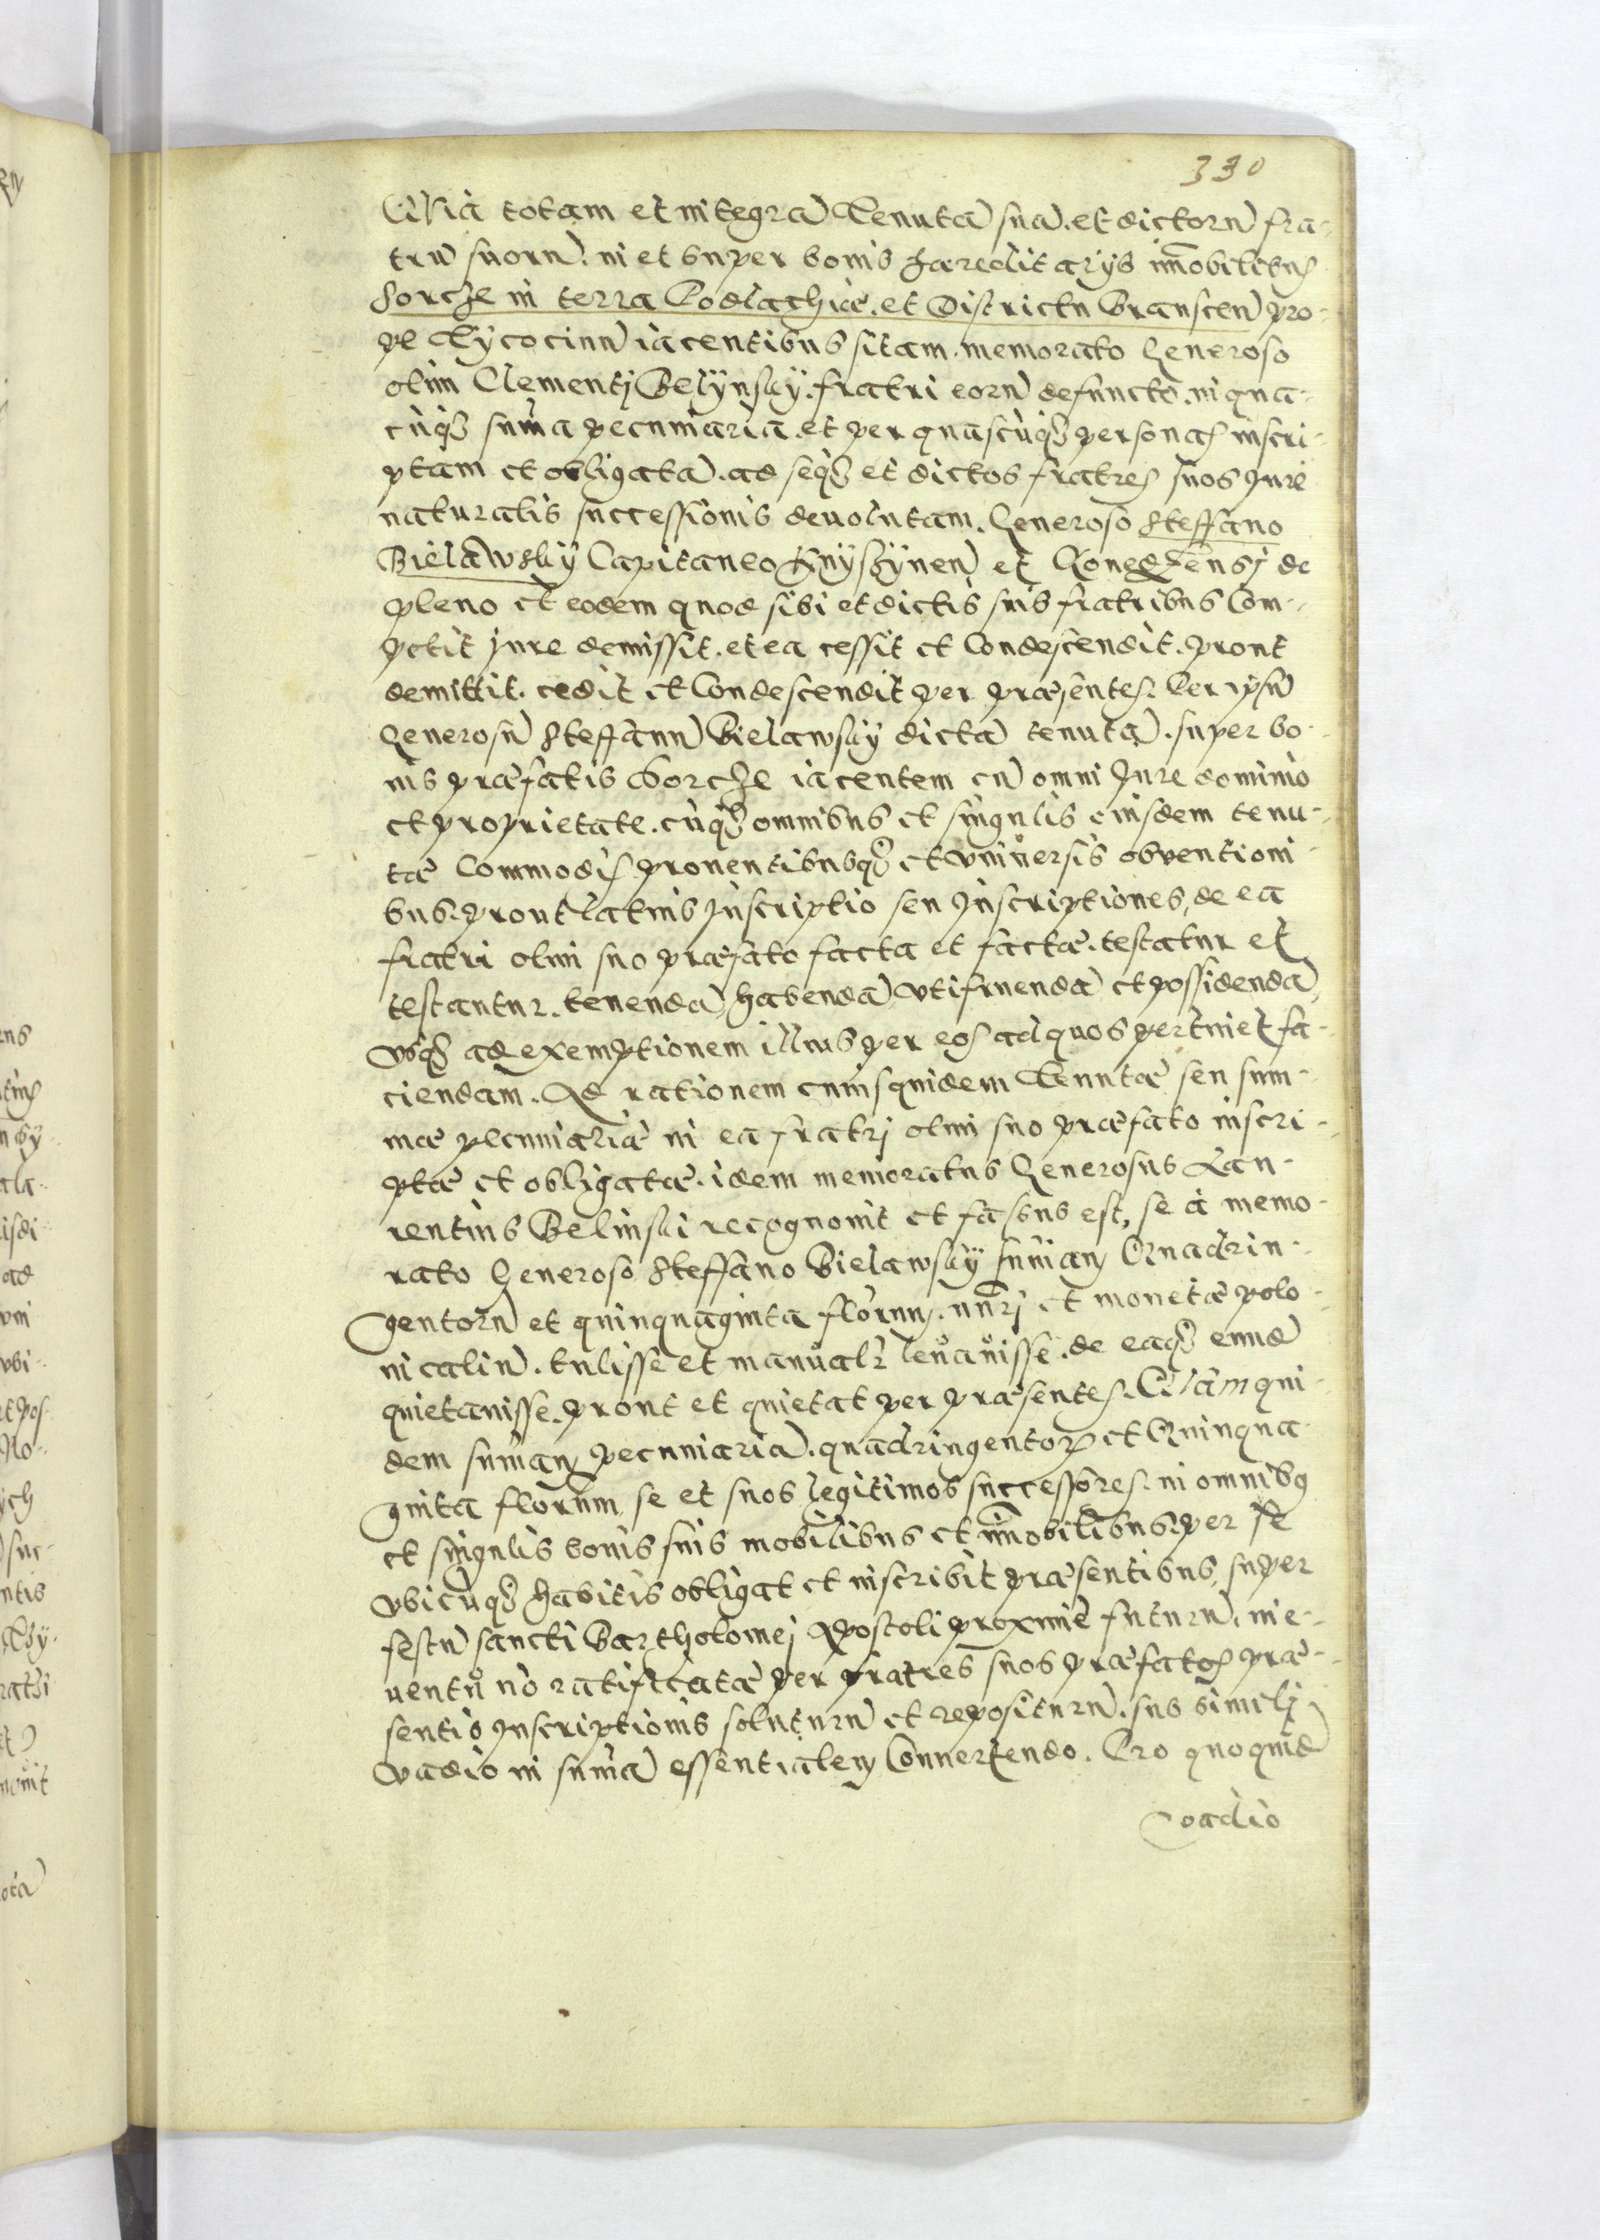 330
Quia totam et integrā Tenutā suā. et dictorū fra-
trū suorū. in et super bonis haereditarijs īmobilibus
Sorcze in terra Podlachiae. et Districtu Branscen̄ pro-
pe Tycocinū iacentibus sitam. memorato Generoso
olim Clementj Belÿnskÿ. fratri eorū defuncto. in qua-
cūq3 sum̄a pecuniaria. et per quascūq3 personas inscri-
ptam et obligatā. ad seq3 et dictos fratres suos Jure
naturalis successionis deuolutam. Generoso Steffano
Bielawskÿ Capitaneo Knÿsȝÿnen̄ et Ronedȝensj de
pleno et eodem quod sibi et dictis suis fratribus Com-
petit jure demissit. et ea cessit et Condescendit. prout
demittit. cedit et Condescendit per praesentes. Per ipsū
Generosū Steffanū Bielawskÿ dictā tenutā. super bo-
nis praefatis Sorcze iacentem cū omni Jure dominio
et proprietate. cūq3 omnibus et singulis eiusdem tenu-
tae Commodis prouentibusq3 et vniuersis obventioni-
bus. prout latius Inscriptio seu Inscriptiones, de ea
fratri olim suo praefato facta et factae. testatur et
testantur. tenendā habendā vtifruendā et possidendā,
vsq3 ad exemptionem illius per eos ad quos pertinet fa-
ciendam. Ad rationem cuiusquidem Tenutae seu sum-
mae pecuniariae in ea fratrj olim suo praefato inscri-
ptae et obligatae. idem memoratus Generosus Lau-
rentius Belinski recognouit et fassus est, se à memo-
rato Generoso Steffano Bielawskÿ sum̄am Quadrin-
gentorū et quinquaginta florenū. num̄rj et monetae polo-
nicaliū. tulisse et manualr̄ leuauisse. de eaq3 eund̄
quietauisse. prout et quietat per praesentes. Quam qui-
dem sum̄am pecuniariā. quadringentor̄ et Quinqua-
ginta florenūm se et suos legitimos successores. in omnibus
et singulis bonis suis mobilibus et im̄obilibus. per se
vbicūq3 habitis obligat et inscribit praesentibus, super
festū sancti Bartholomej Apostoli proxime futurū. in e-
uentū nō ratificatae per fratres suos praefatos prae-
sentis Inscriptionis soluturū et repositurū. sub similj
vadio in sum̄ā essentialem Conuertendo. Pro quoquid̄
vadio